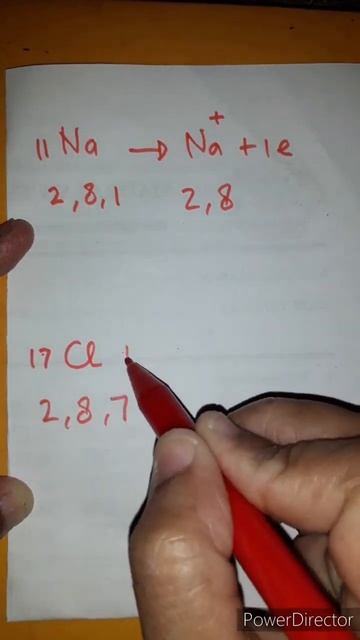 11Na → Na⁺ + 1e
2,8,1 2,8
17 Cl
2,8,7
PowerDirector